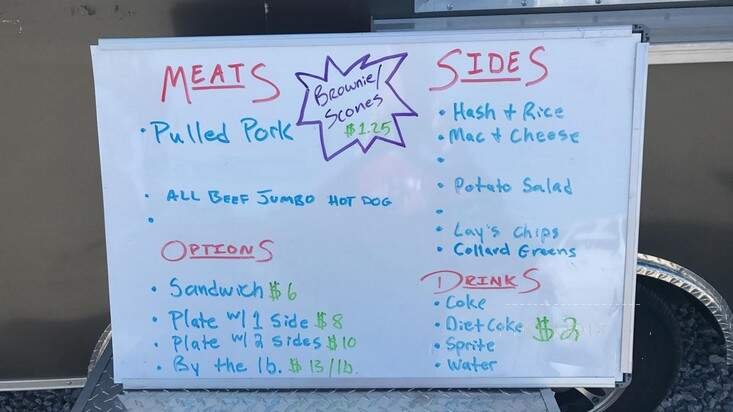 MEATS
• Pulled Pork
• ALL BEEF JUMBO HOT DOG
•
Brownie/
Scones
$1.25
OPTIONS
• Sandwich $6
• Plate w/ 1 Side $8
• Plate w/ 2 Sides $10
• By the lb. $13/lb.
SIDES
• Hash + Rice
• Mac + Cheese
•
• Potato Salad
•
• Lay's Chips
• Collard Greens
DRINKS
• Coke
• Diet Coke $2
• Sprite
• Water